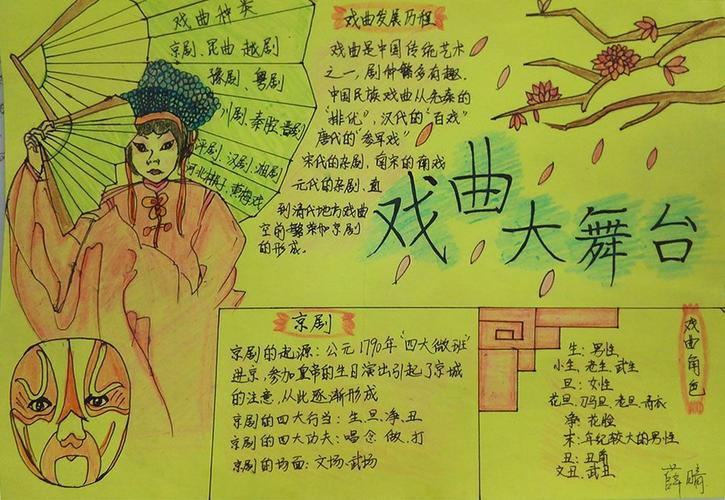 戏曲种类
京剧、昆曲 越剧
豫剧、粤剧
川剧、秦腔、晋剧
评剧、汉剧、湘剧
河北梆子、黄梅戏
戏曲发展历程
戏曲是中国传统艺术
之一，剧种繁多有趣。
中国民族戏曲从先秦的
"俳优"，汉代的"百戏"
唐代的"参军戏"
宋代的杂剧，南宋的南戏
元代的杂剧，直
到清代地方戏曲
空前繁荣和京剧
的形成。
戏曲大舞台
京剧
京剧的起源：公元1790年"四大徽班"
进京，参加皇帝的生日演出引起了京城
的注意，从此逐渐形成
京剧的四大行当：生、旦、净、丑
京剧的四大功夫：唱 念 做、打
京剧的场面：文场、武场
戏曲角色
生：男性
小生、老生、武生
旦：女性
花旦、刀马旦、老旦、青衣
净：花脸
末：年纪较大的男性
丑：丑角
文丑、武丑
薛晴